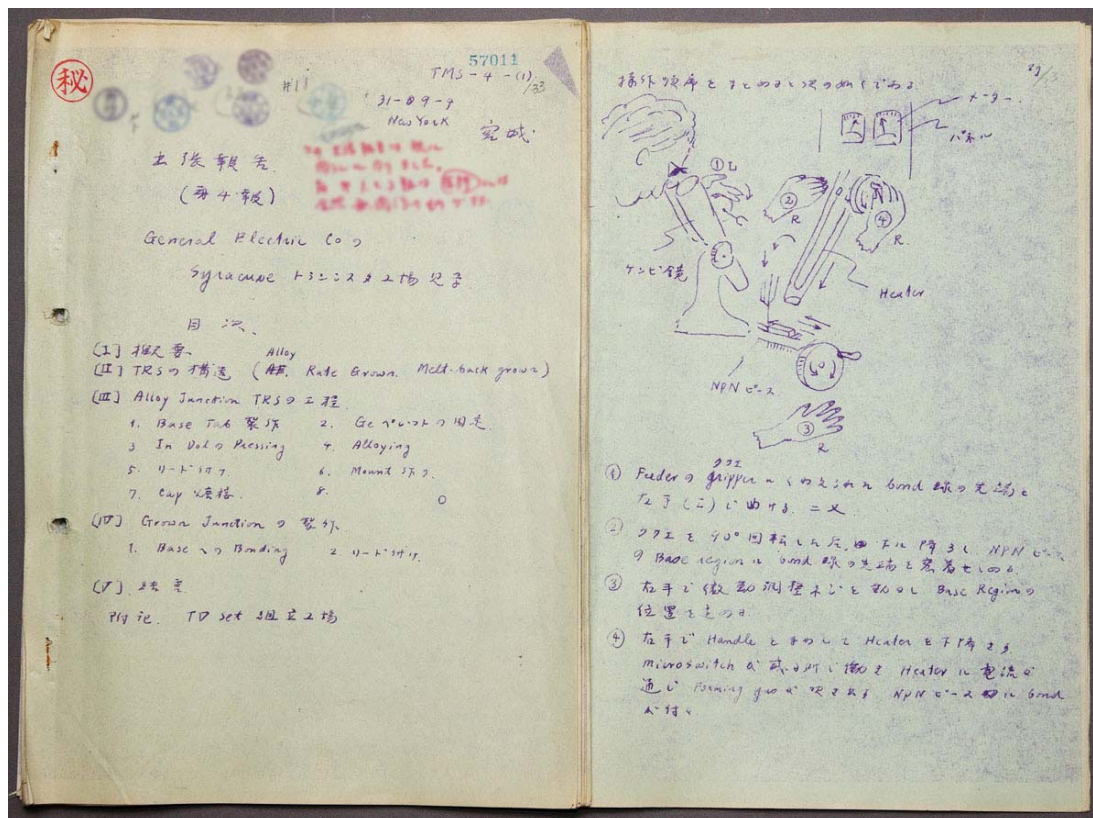 秘
57011
#11
TMS-4-(1)/33
31-09-9
New York
出張報告
(第4報)
General Electric Co の
Syracuse トランジスタ工場見学
目次.
[I] 概要
Alloy
[II] TRSの構造 ( Rate Grown. Melt-back grown)
[III] Alloy Junction TRSの工程
1. Base Tab 製作 2. Ge ペレットの固定
3 In Dotの Pressing 4. Alloying
5. リード付け 6. Mount 作り.
7. Cap 熔接. 8.
[IV] Grown Junction の製作
1. Base への Bonding 2. リード付け.
[V] 結言
附記. TV set 組立工場
操作順序をまとめると次の如くである
メーター
パネル
①L
②
R
④
R.
ケンビ鏡
Heater
NPN ピース
③
R
クワエ
① Feederの gripper にくわえられた bond 線の先端を
左手(工)で曲げる.
② クワエを90°回転した后, 下に降ろし NPN ピース
の Base region に bond 線の先端を密着せしめる.
③ 右手で微動調整ネジを動かし Base Regionの
位置をきめる
④ 右手で Handle をまわして Heater を下降さす
microswitch が或る所で働き Heater に電流が
通じ Forming gas が吹き出る NPN ピースに bond
が付く